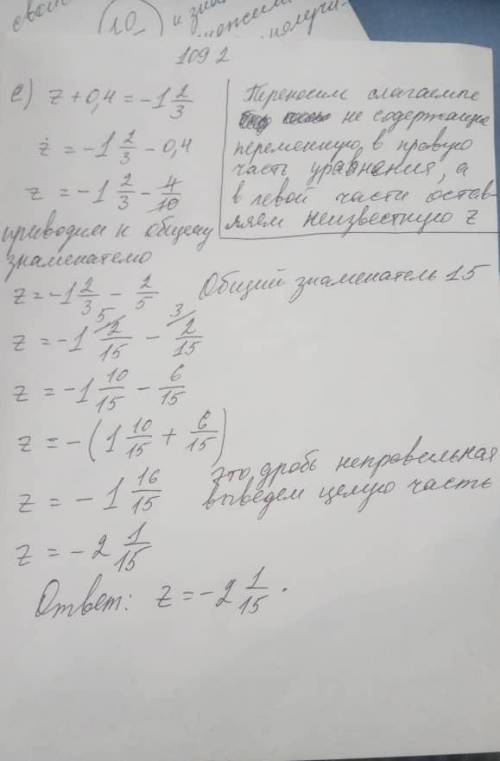 свой
10
и зна
получи-
1092
е) z + 0,4 = -1 2/3
z = -1 2/3 - 0,4
z = -1 2/3 - 4/10
Переносим слагаемые
не содержащие
переменную, в правую
часть уравнения, а
в левой части остав-
ляем неизвестную z
приводим к общему
знаменателю
z = -1 2/3 - 2/5 Общий знаменатель 15
z = -1 5/ 2/15 - 3/ 2/15
z = -1 10/15 - 6/15
z = -(1 10/15 + 6/15)
z = -1 16/15 это дробь неправильная
выведем целую часть
z = -2 1/15
Ответ: z = -2 1/15.